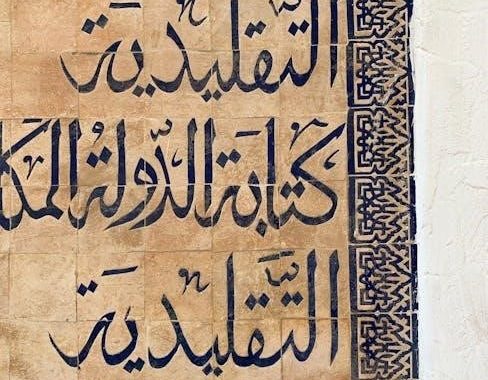 التقليدية
كتابة الدولة
التقليدية